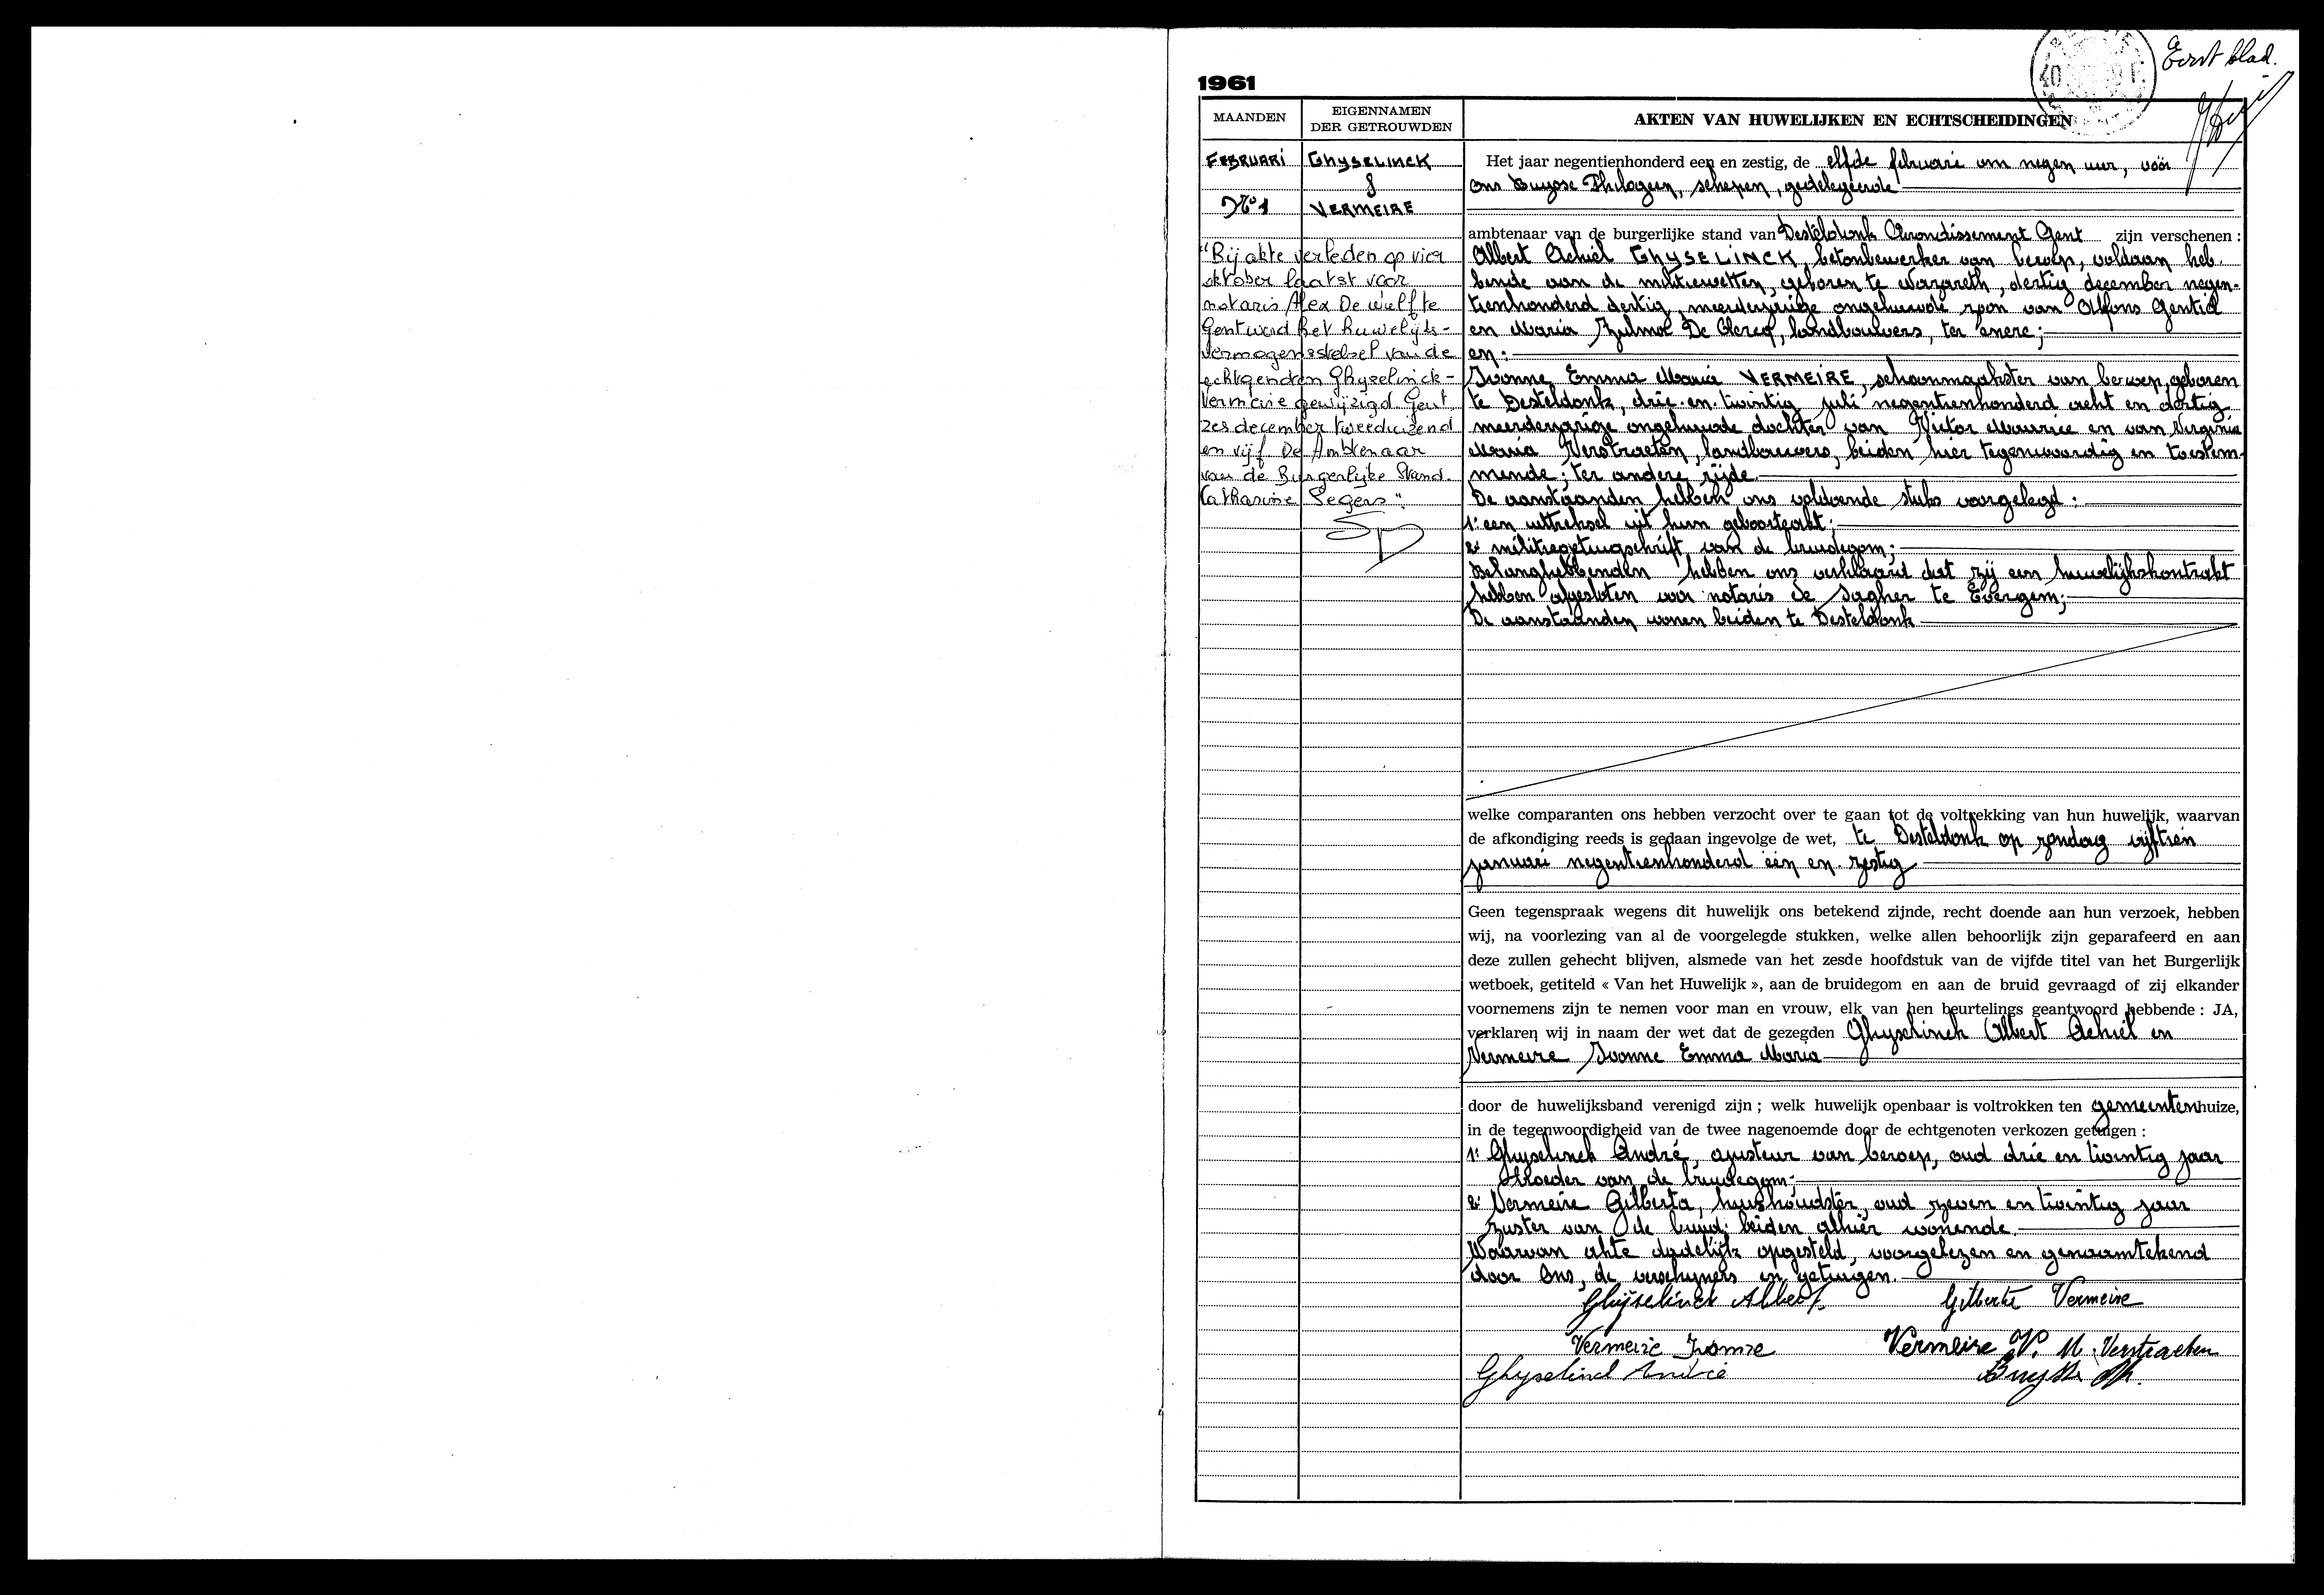 Eerst blad.
1961
MAANDEN
EIGENNAMEN
DER GETROUWDEN
AKTEN VAN HUWELIJKEN EN ECHTSCHEIDINGEN
FEBRUARI
GHYSELINCK
&
N° 1
VERMEIRE
"Bij akte verleden op vier
oktober laatst voor
notaris Alex De Wulf te
Gent werd het huwelijks-
vermogensstelsel van de
echtgenoten Ghyselinck-
Vermeire gewijzigd. Gent,
zes december tweeduizend
en vijf De Ambtenaar
van de Burgerlijke Stand.
Catharine Segers".
Het jaar negentienhonderd een en zestig, de elfde februari om negen uur, vóór
ons Buysse Philogeen, schepen, gedelegeerde
ambtenaar van de burgerlijke stand van Desteldonk Arrondissement Gent zijn verschenen :
Albert Achiel GHYSELINCK, betonbewerker van beroep, voldaan heb-
bende aan de militiewetten, geboren te Nazareth, dertig december negen-
tienhonderd dertig, meerderjarige ongehuwde zoon van Alfons Gentiel
en Maria Zulma De Clercq, landbouwers, ter enere;
en:
Ivonne Emma Maria VERMEIRE, schoonmaakster van beroep, geboren
te Desteldonk, drie en twintig juli negentienhonderd acht en dertig
meerderjarige ongehuwde dochter van Victor Maurice en van Virginia
Maria Verstraeten, landbouwers, beiden hier tegenwoordig en toestem-
mende; ter andere zijde
De aanstaanden hebben ons voldoende stuks voorgelegd :
1: een uittreksel uit hun geboorteakt;
2: militiegetuigschrift van de bruidegom;
Belanghebbenden hebben ons verklaard dat zij een huwelijkskontrakt
hebben afgesloten voor notaris de Sagher te Evergem;
De aanstaanden wonen beiden te Desteldonk
welke comparanten ons hebben verzocht over te gaan tot de voltrekking van hun huwelijk, waarvan
de afkondiging reeds is gedaan ingevolge de wet, te Desteldonk op zondag vijftien
januari negentienhonderd één en zestig
Geen tegenspraak wegens dit huwelijk ons betekend zijnde, recht doende aan hun verzoek, hebben
wij, na voorlezing van al de voorgelegde stukken, welke allen behoorlijk zijn geparafeerd en aan
deze zullen gehecht blijven, alsmede van het zesde hoofdstuk van de vijfde titel van het Burgerlijk
wetboek, getiteld « Van het Huwelijk », aan de bruidegom en aan de bruid gevraagd of zij elkander
voornemens zijn te nemen voor man en vrouw, elk van hen beurtelings geantwoord hebbende : JA,
verklaren wij in naam der wet dat de gezegden Ghyselinck Albert Achiel en
Vermeire Ivonne Emma Maria
door de huwelijksband verenigd zijn ; welk huwelijk openbaar is voltrokken ten gemeentenhuize,
in de tegenwoordigheid van de twee nagenoemde door de echtgenoten verkozen getuigen :
1: Ghyselinck André, ajusteur van beroep, oud drie en twintig jaar
Broeder van de bruidegom;
2: Vermeire Gilberta, huishoudster, oud zeven en twintig jaar
zuster van de bruid; beiden alhier wonende.
Waarvan akte dadelijk opgesteld, voorgelezen en genaamtekend
door Ons, de verschijners en getuigen.
Ghijselinck Albert Gilberte Vermeire
Vermeire Ivonne Vermeire V. M. Verstraeten
Ghyselinck André Buysse Ph.